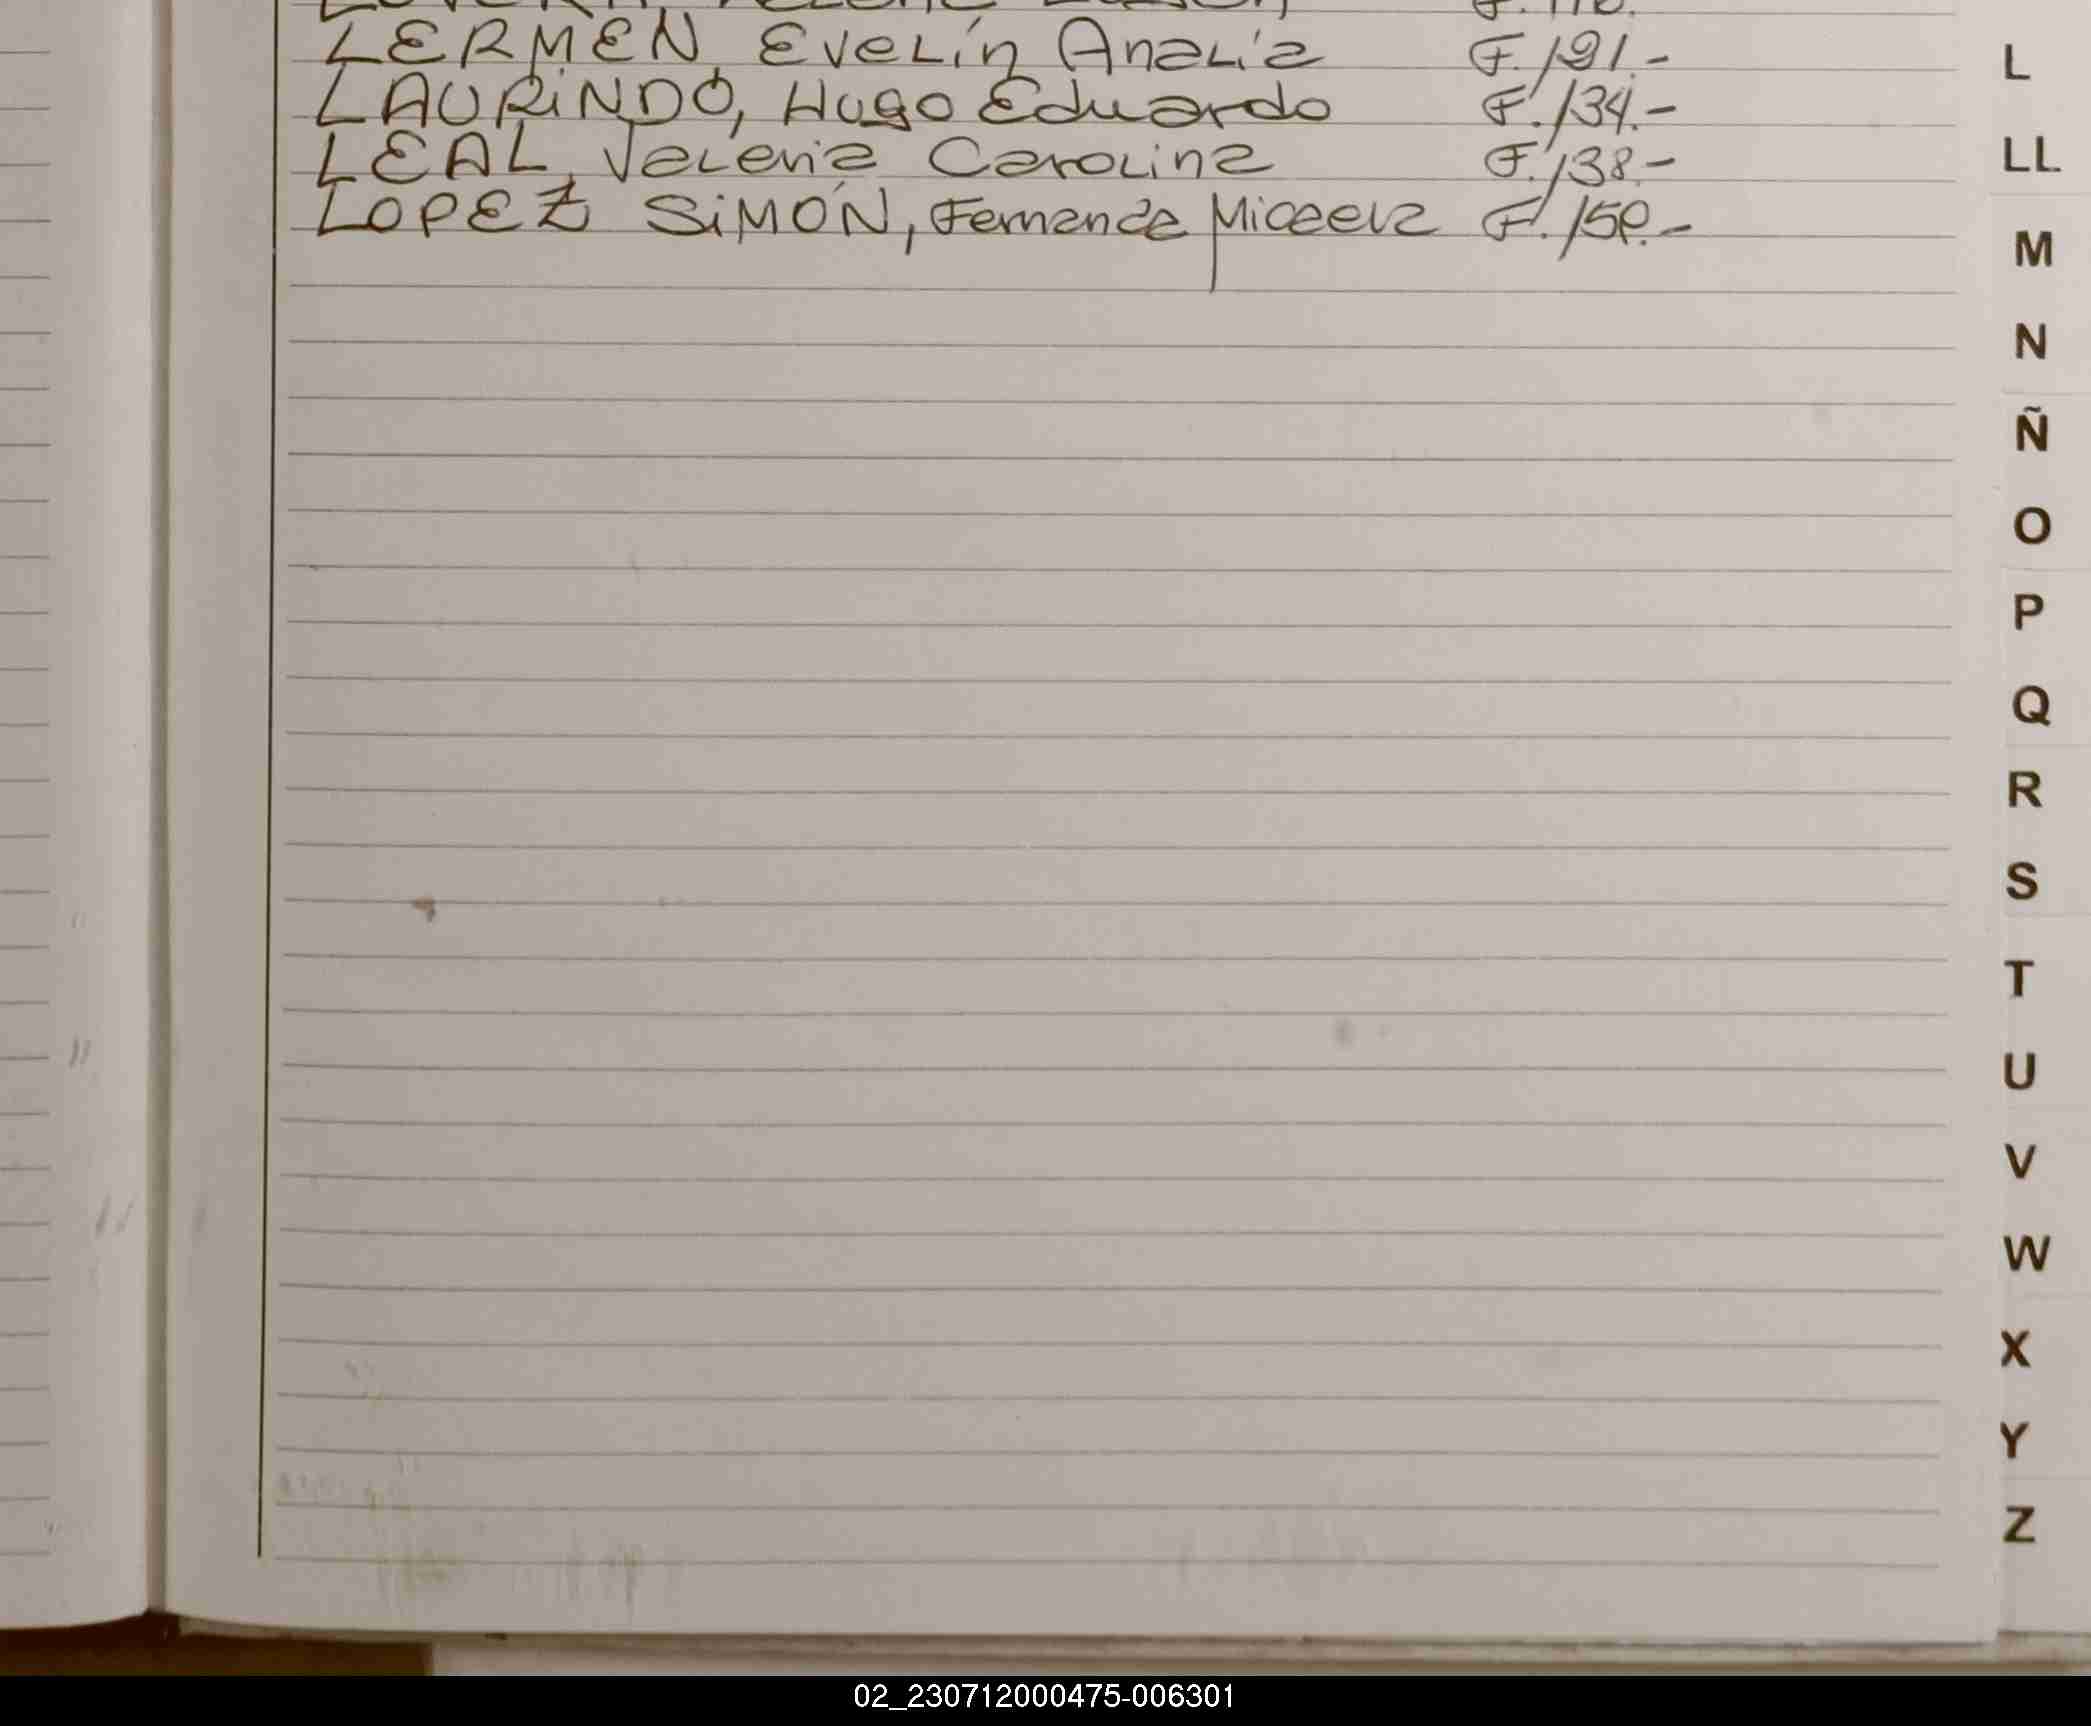 LERMEN, Evelín Analía F. 191.-
LAURINDO, Hugo Eduardo F. 134.-
LEAL, Valeria Carolina F. 138.-
LOPEZ SIMÓN, Fernanda Micaela F. 150.-
L
LL
M
N
Ñ
O
P
Q
R
S
T
U
V
W
X
Y
Z
02_230712000475-006301